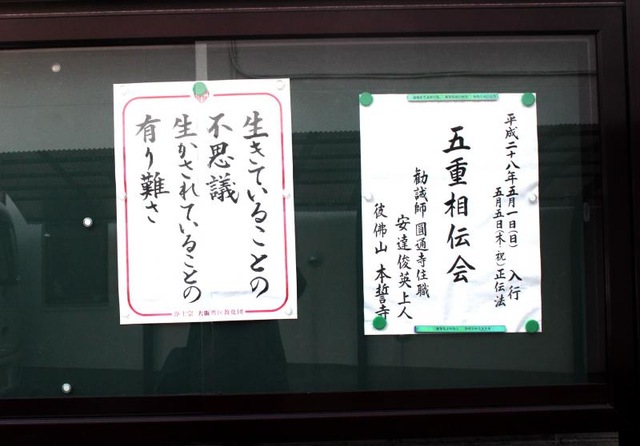 生きていることの
不思議
生かされていることの
有り難さ
浄土宗 大阪教区教化団
平成二十八年五月一日(日) 入行
五月五日(木・祝)正伝法
五重相伝会
勧誡師 圓通寺住職
安達俊英上人
彼佛山 本誓寺